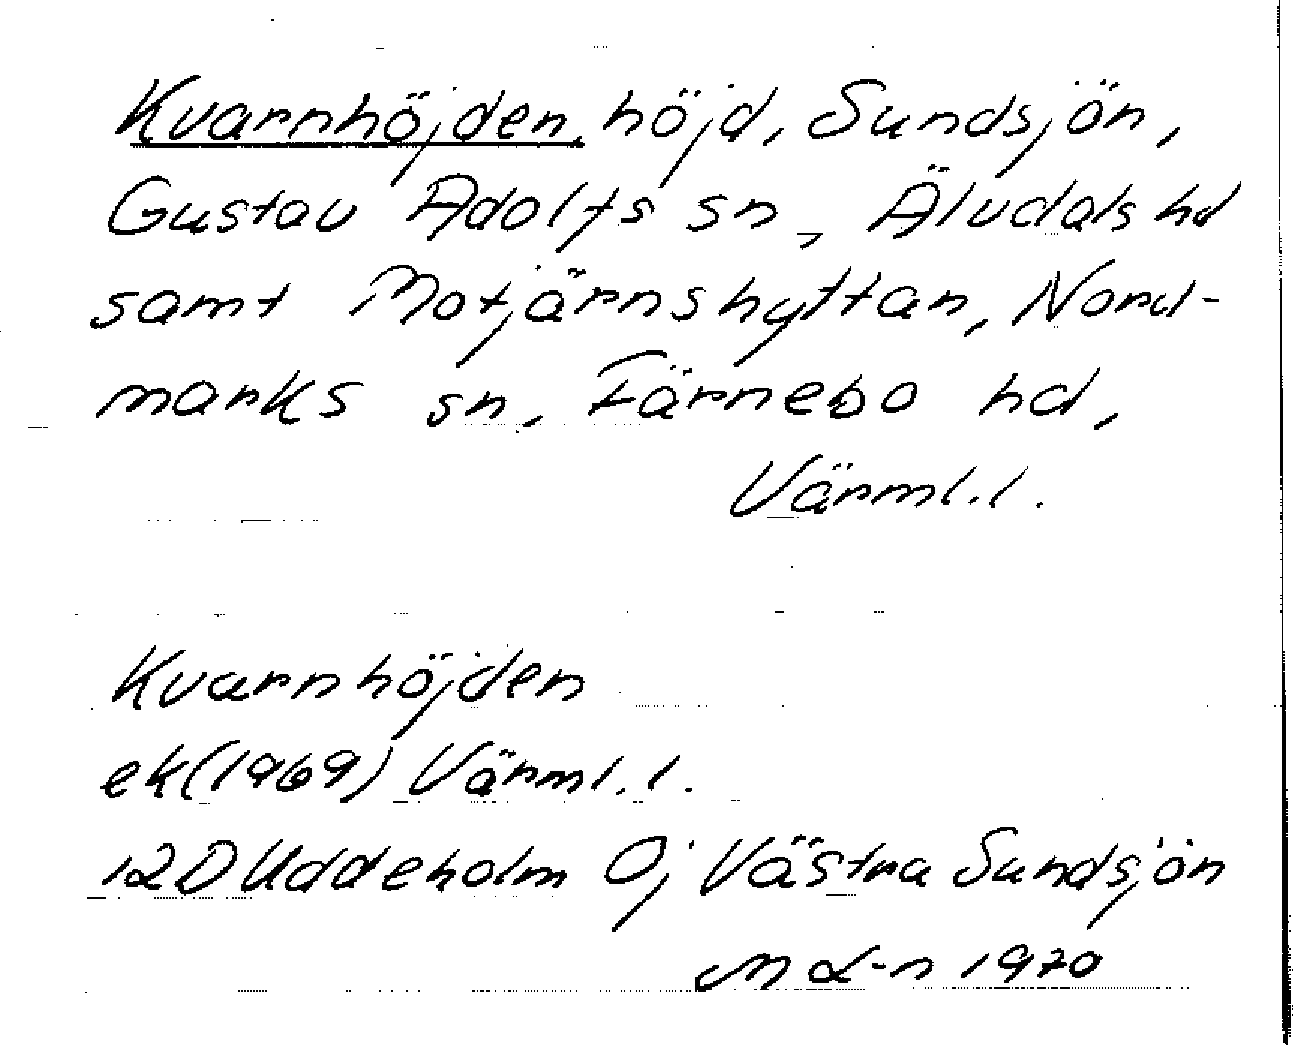 Kvarnhöjden, höjd, Sundsjön,
Gustav Adolfs sn, Älvdals hd
samt Motjärnshyttan, Nord-
marks sn, Färnebo hd,
Värml.l.
Kvarnhöjden
ek(1969) Värml.l.
12D Uddeholm 0j Västra Sundsjön
M L-n 1970